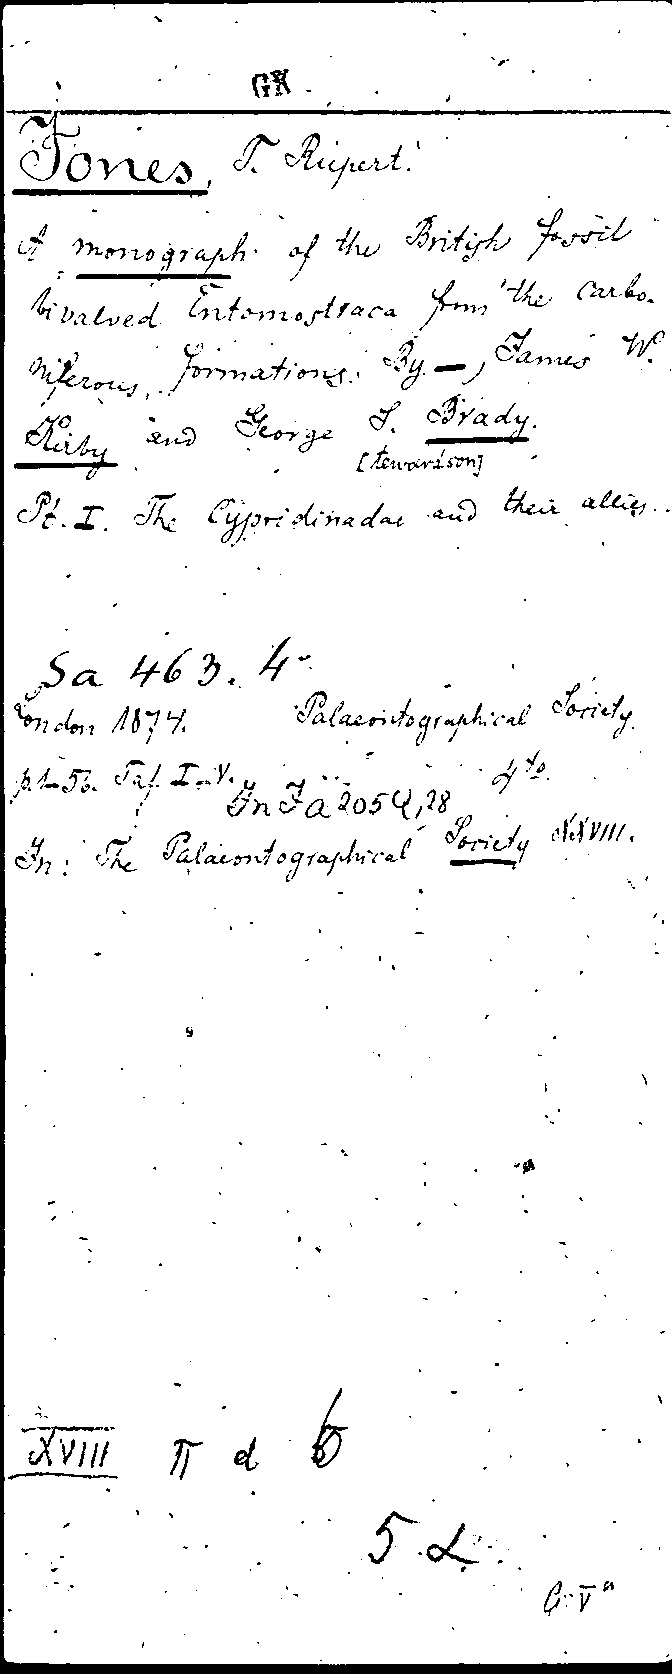 GK
Jones, T. Rupert.
A monograph of the British fossil
bivalved Entomostraca from the carbo-
niferous formations. By —, James W.
Kirby and George S. Brady.
[tewardson]
Pt. I. The Cypridinadae and their allies.
Sa 463. 4°
London 1874. Palaeontographical Society
p. 1-56. Taf. I-V. 4to
In Fa 2054,28
In: The Palaeontographical Society XXVIII.
XVIII π d 6
5 α.